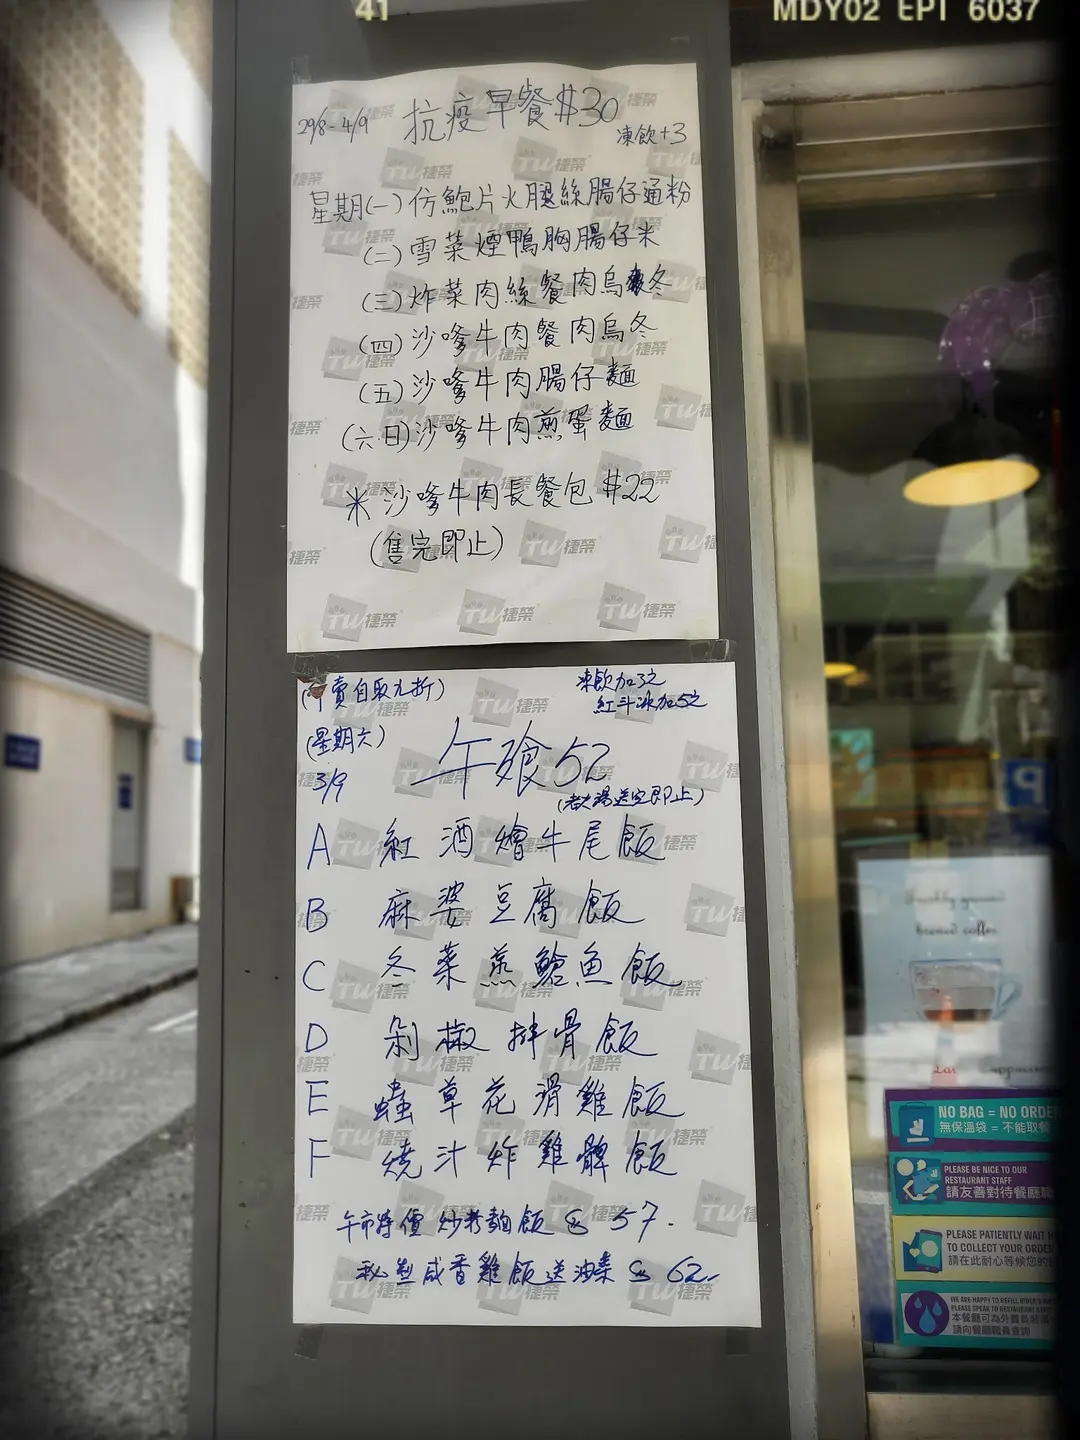 41
MDY02 EPI 6037
29/8-4/9 抗疫早餐$30
凍飲+3
星期(一)仿鮑片火腿絲腸仔通粉
(二)雪菜煙鴨胸腸仔米
(三)炸菜肉絲餐肉烏冬
(四)沙嗲牛肉餐肉烏冬
(五)沙嗲牛肉腸仔麵
(六.日)沙嗲牛肉煎蛋麵
米 沙嗲牛肉長餐包 $22
(售完即止)
賣自取九折)
凍飲加3元
紅豆冰加5元
(星期六)
3/9
午飧 52
湯送完即止)
A 紅酒燴牛尾飯
B 麻婆豆腐飯
C 冬菜蒸鯧魚飯
D 剁椒排骨飯
E 蟲草花滑雞飯
F 燒汁炸雞髀飯
午市特價 炒粉麵飯 $ 57.
秘製咸香雞飯送油菜 $ 62.-
TW捷榮
P
Freshly ground
brewed coffee
NO BAG = NO ORDE
無保溫袋 = 不能取餐
PLEASE BE NICE TO OUR
RESTAURANT STAFF
請友善對待餐廳職
PLEASE PATIENTLY WAIT H
TO COLLECT YOUR ORDE
請在此耐心等候您的
WE ARE HAPPY TO REFILL RIDER'S
PLEASE SPEAK TO RESTAURANT
本餐廳可為外賣員裝
請向餐廳職員查詢